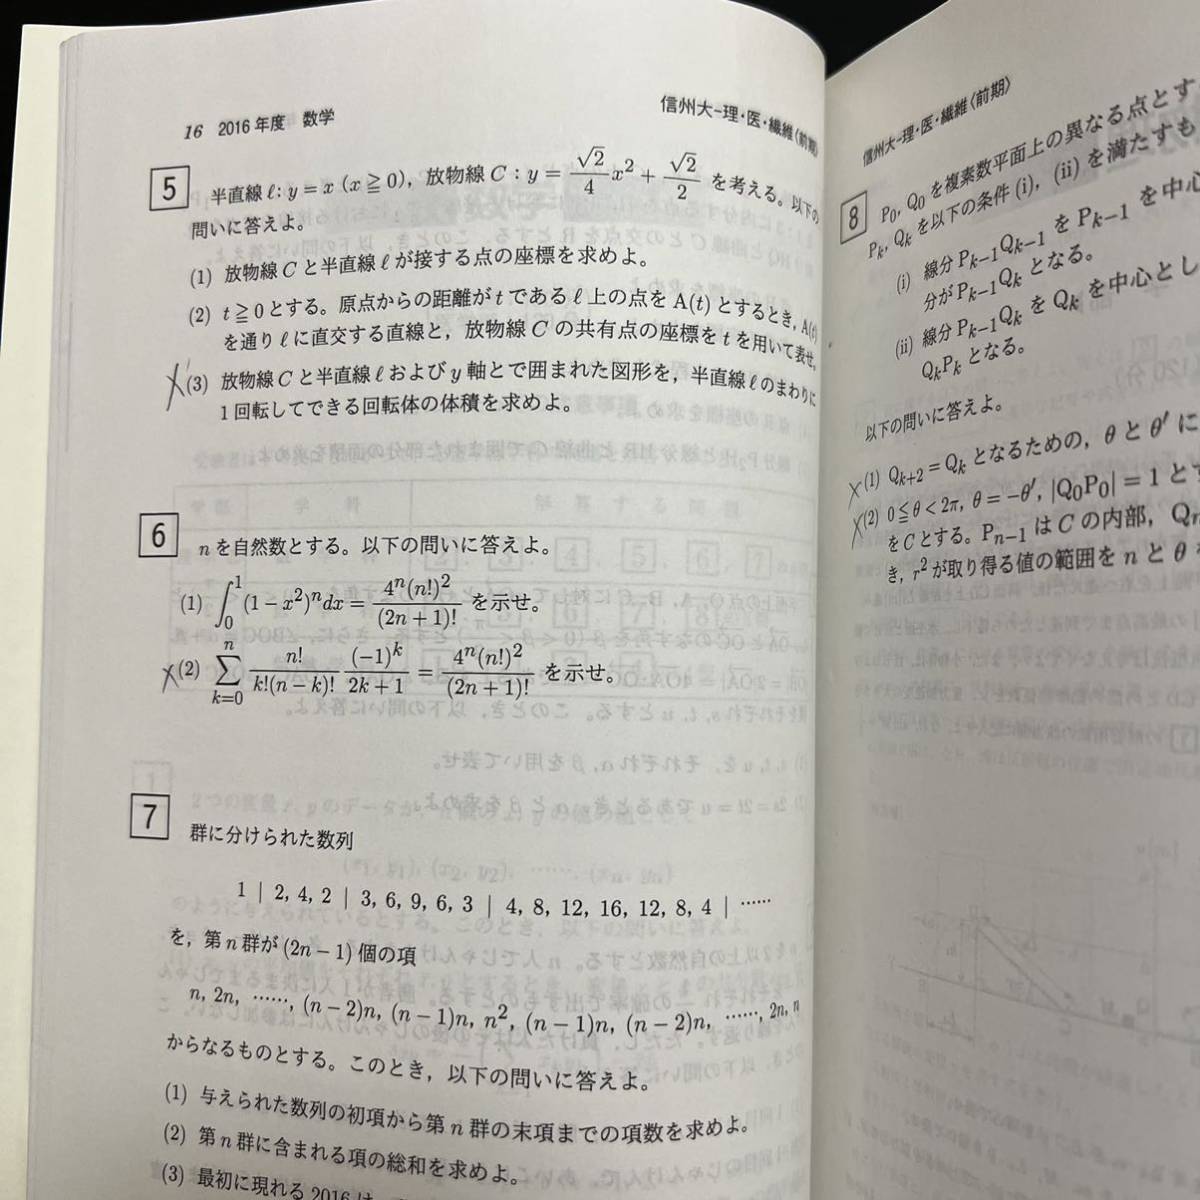 16 2016年度 数学
信州大-理・医・繊維〈前期〉
5 半直線ℓ: y = x (x ≧ 0), 放物線 C : y = √2/4 x² + √2/2 を考える。以下の
問いに答えよ。
(1) 放物線 C と半直線 ℓ が接する点の座標を求めよ。
(2) t ≧ 0 とする。原点からの距離が t である ℓ 上の点を A(t) とするとき, A(t)
を通り ℓ に直交する直線と, 放物線 C の共有点の座標を t を用いて表せ。
(3) 放物線 C と半直線 ℓ および y 軸とで囲まれた図形を, 半直線 ℓ のまわりに
1回転してできる回転体の体積を求めよ。
6 n を自然数とする。以下の問いに答えよ。
(1) ∫₀¹ (1 − x²)ⁿ dx = 4ⁿ(n!)²/(2n + 1)! を示せ。
(2) Σ_{k=0}^{n} n!/(k!(n − k)!) (−1)ᵏ/(2k + 1) = 4ⁿ(n!)²/(2n + 1)! を示せ。
7 群に分けられた数列
1 | 2, 4, 2 | 3, 6, 9, 6, 3 | 4, 8, 12, 16, 12, 8, 4 | ……
を, 第 n 群が (2n − 1) 個の項
n, 2n, ……, (n − 2)n, (n − 1)n, n², (n − 1)n, (n − 2)n, ……, 2n, n
からなるものとする。このとき, 以下の問いに答えよ。
(1) 与えられた数列の初項から第 n 群の末項までの項数を求めよ。
(2) 第 n 群に含まれる項の総和を求めよ。
(3) 最初に現れる 2016 は
信州大-理・医・繊維〈前期〉
8 P₀, Q₀ を複素数平面上の異なる点とす
Pₖ, Qₖ を以下の条件 (i), (ii) を満たすも
(i) 線分 Pₖ₋₁Qₖ₋₁ を Pₖ₋₁ を中心
分が Pₖ₋₁Qₖ となる。
(ii) 線分 Pₖ₋₁Qₖ を Qₖ を中心とし
QₖPₖ となる。
以下の問いに答えよ。
(1) Qₖ₊₂ = Qₖ となるための, θ と θ′ に
(2) 0 ≦ θ < 2π, θ = −θ′, |Q₀P₀| = 1 と
を C とする。Pₙ₋₁ は C の内部, Qₙ
き, r² が取り得る値の範囲を n と θ